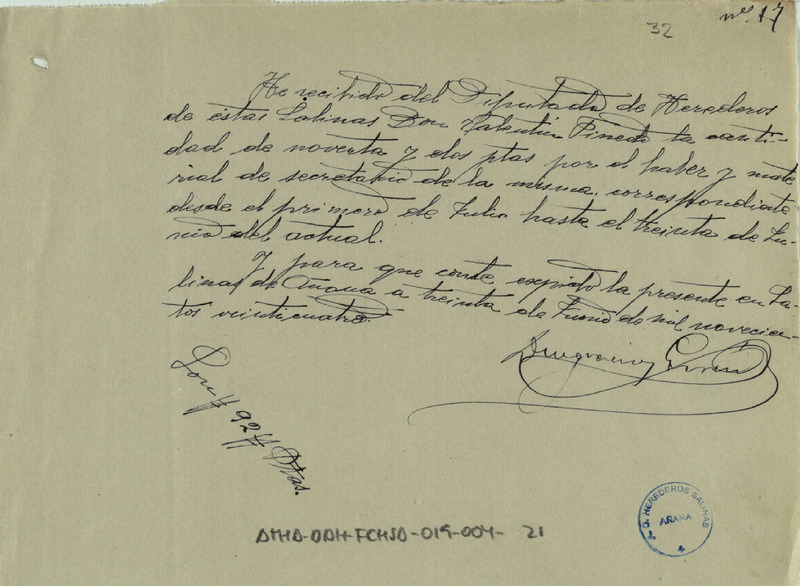 nº 17
32
He recibido del Diputado de Herederos
de estas Salinas Don Valentín Pinedo la canti-
dad de noventa y dos ptas por el haber y mate
rial de secretario de la misma, correspondiente
desde el primero de Julio hasta el treinta de Ju-
nio del actual.
Y para que conste expido la presente en Sa-
linas de Añana a treinta de Junio de mil novecien-
tos veinticuatro.
Son # 92 # Ptas.
AMA-DDH-FCHSA-019-004-21
HEREDEROS SALINAS
AÑANA